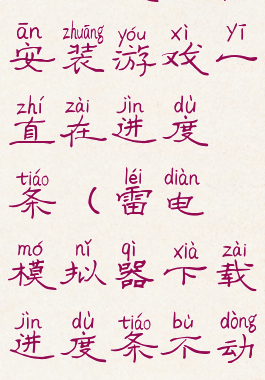 ān zhuāng yóu xì yī
安装游戏一
zhí zài jìn dù
直在进度
tiáo léi diàn
条（雷电
mó nǐ qì xià zài
模拟器下载
jìn dù tiáo bù dòng
进度条不动